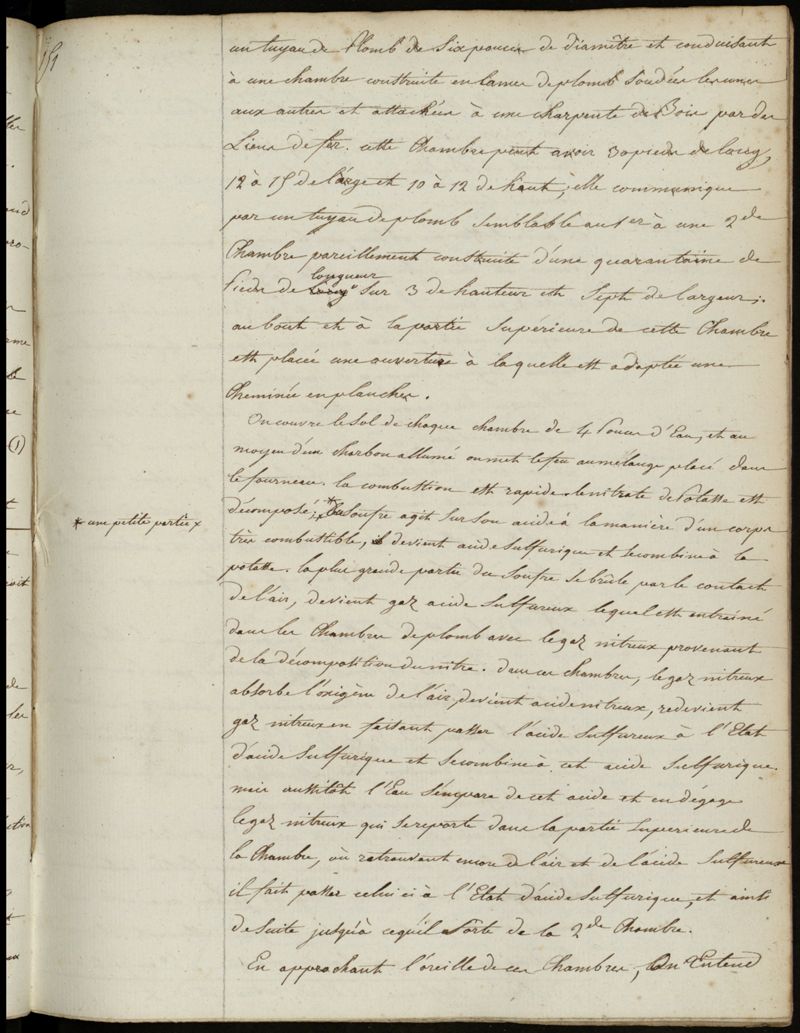 151
un tuyau de Plomb de Six pouces de diamêtre et conduisant
à une chambre construite en lames de plomb Soudées les unes
aux autres et attachées à une charpente de Bois par des
Liens de fer. cette Chambre peut avoir 30 pieds de long,
12 à 15 de large et 10 à 12 de haut; elle communique
par un tuyau de plomb semblable au 1er à une 2de
Chambre pareillement construite d'une quarantaine de
Pieds de longueur sur 3 de hauteur et Sept de largeur;
au bout et à la partie Supérieure de cette Chambre
est placée une ouverture à laquelle est adaptée une
Cheminée en planches.
On couvre le Sol de chaque chambre de 4 Pouces d'Eau, et au
moyen d'un charbon allumé on met le feu au mélange placé dans
le fourneau. la combustion est rapide. le nitrate de Potasse est
décomposé; * du Soufre agit sur son acide à la manière d'un corps
* une petite partie x
très combustible, il devient acide sulfurique et se combine à la
potasse. la plus grande partie du Soufre se brûle par le contact
de l'air, devient gaz acide Sulfureux lequel est entraîné
dans les Chambres de plomb avec le gaz nitreux provenant
de la décomposition du nitre. dans ces chambres, le gaz nitreux
absorbe l'oxigène de l'air, devient acide nitreux, redevient
gaz nitreux en faisant passer l'acide Sulfureux à l'Etat
d'acide Sulfurique et se combine à cet acide Sulfurique.
mais aussitôt l'Eau s'empare de cet acide et en dégage
le gaz nitreux qui se reporte dans la partie Superieure de
la Chambre, où retrouvant encore de l'air et de l'acide Sulfureux
il fait passer celui ci à l'Etat d'acide Sulfurique, et ainsi
de Suite jusqu'à ce qu'il sorte de la 2de Chambre.
En approchant l'oreille de ces Chambres, On Entend